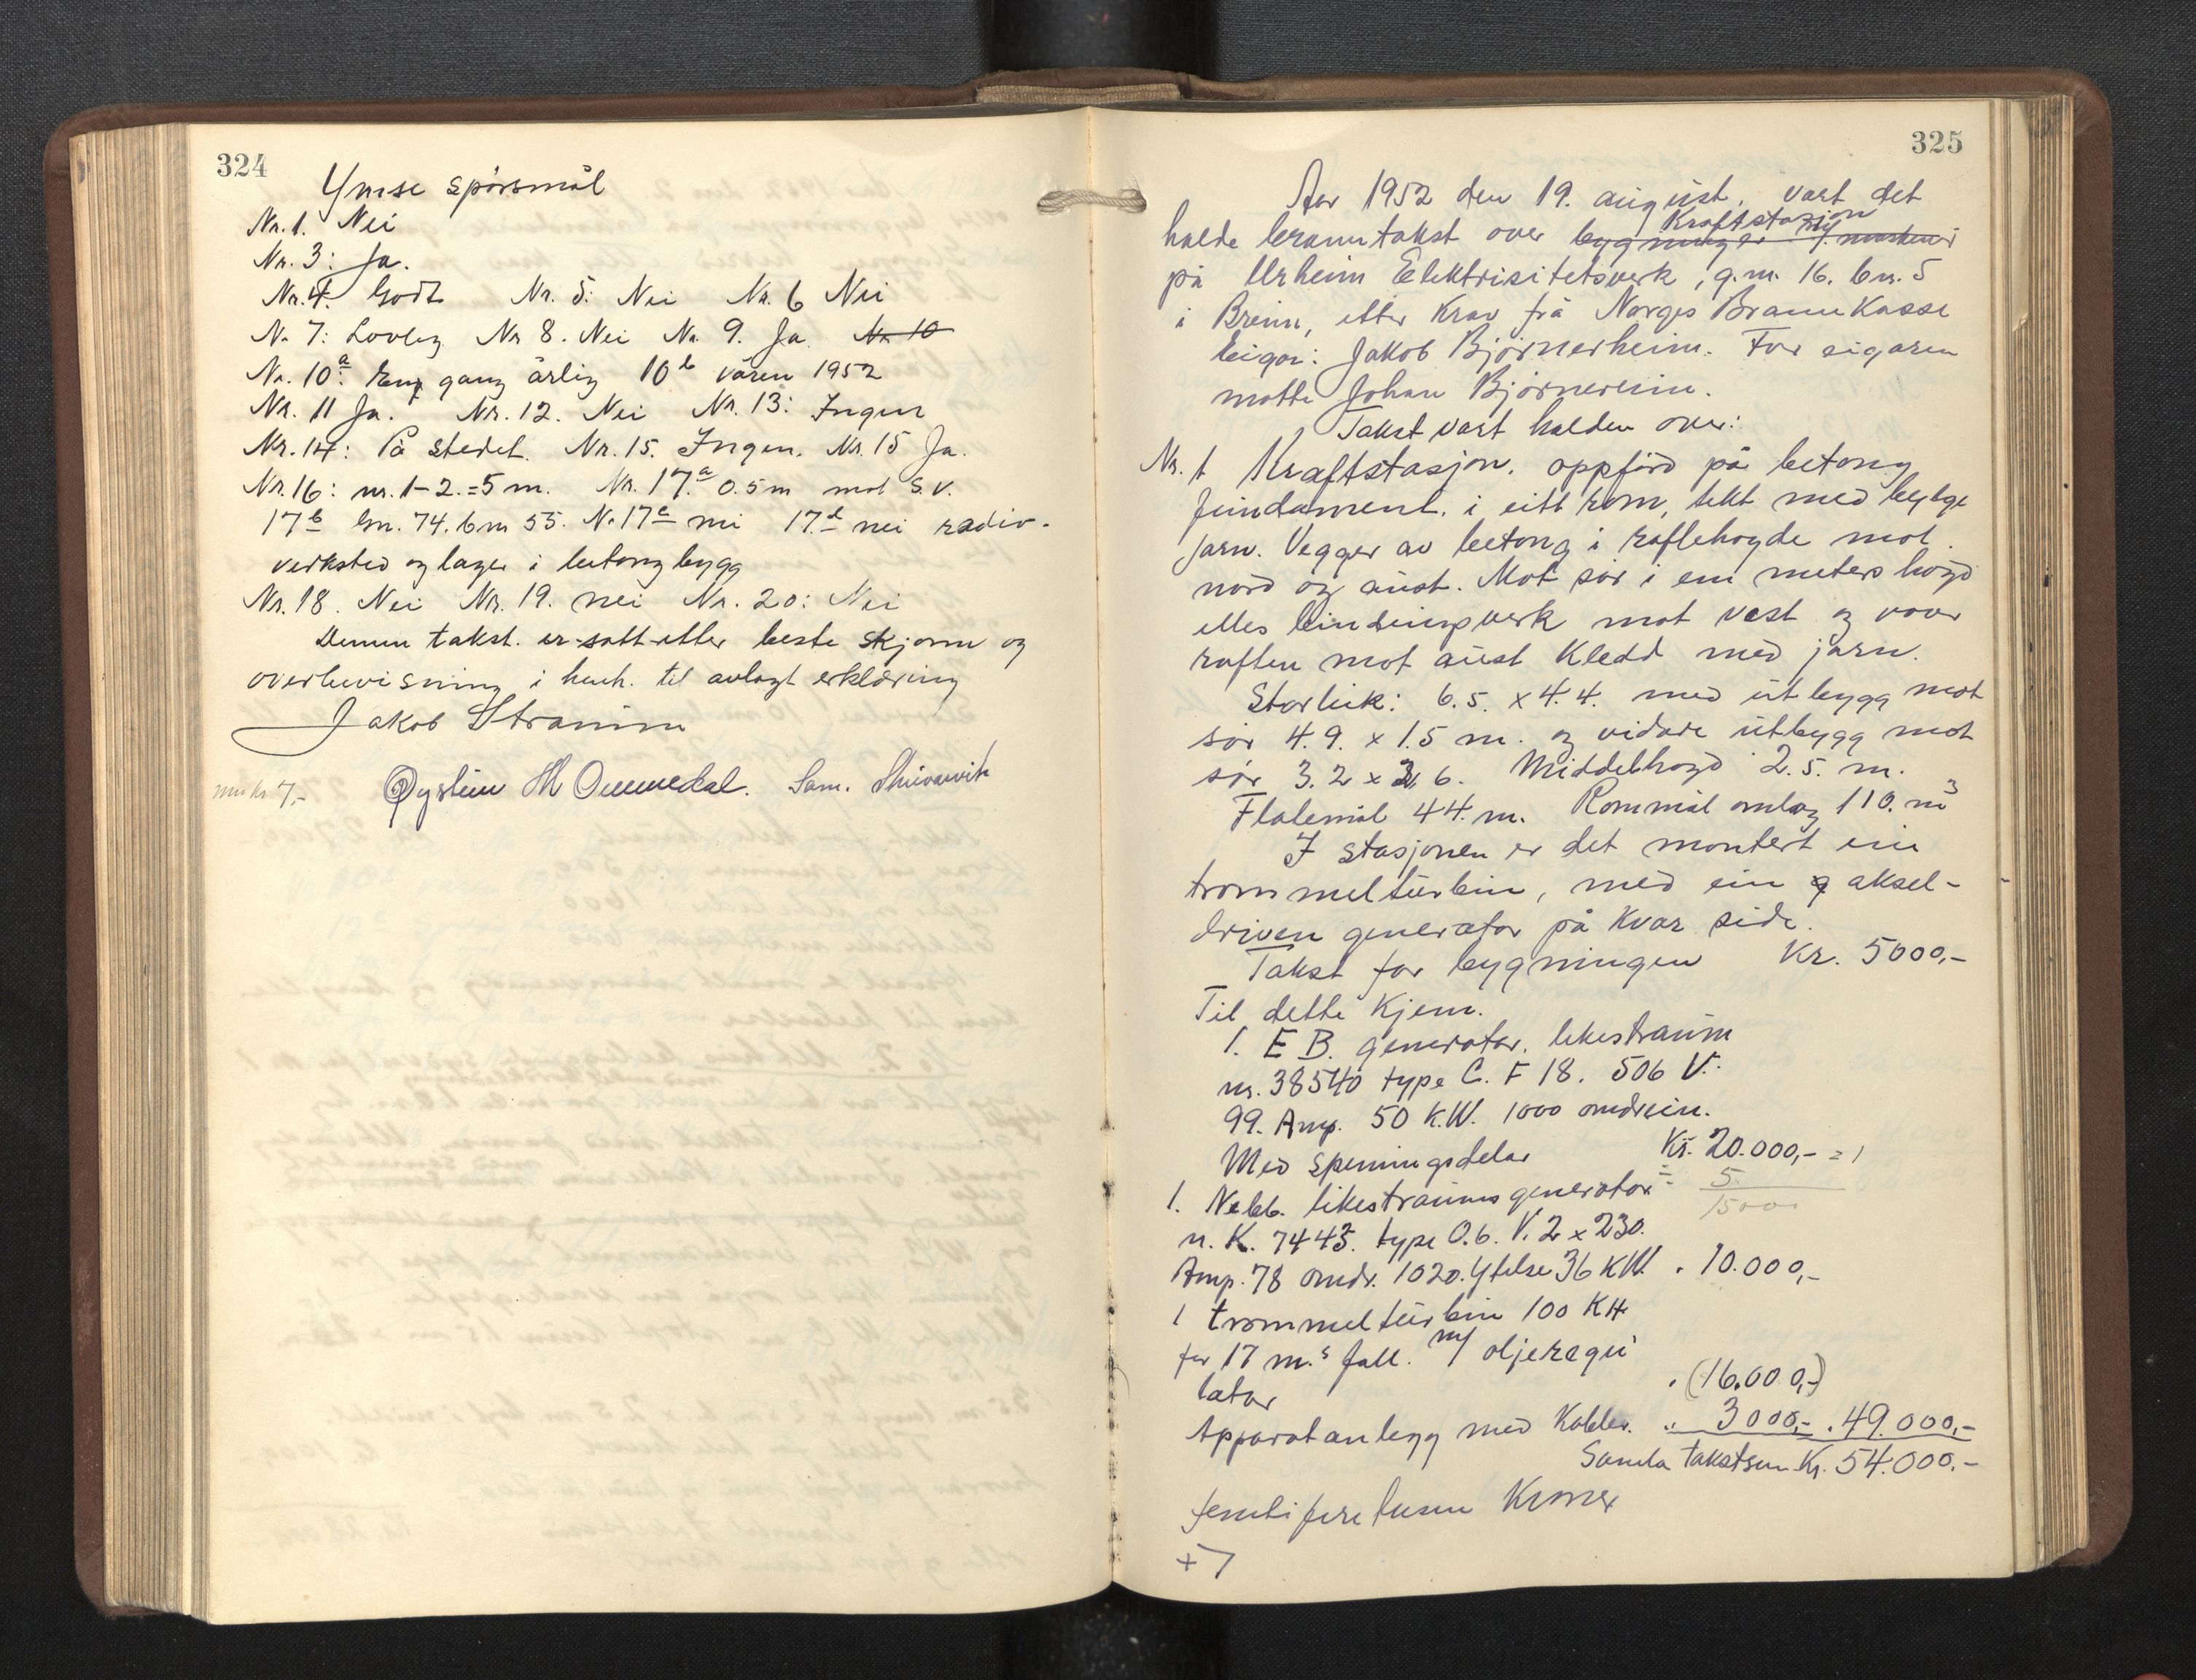 324
Ymse spörsmål
Nr. 1. Nei
Nr. 3: Ja.
Nr. 4. Godt Nr. 5: Nei Nr. 6 Nei
Nr 7: Lovleg Nr 8. Nei Nr. 9. Ja Nr 10
Nr. 10a: Eing gang årlig 10b våren 1952
Nr. 11 Ja. Nr. 12. Nei Nr. 13: Ingen
Nr. 14: På stedet. Nr. 15. Ingen. Nr. 15 Ja.
Nr. 16: nr. 1-2.=5 m. Nr. 17.a 0.5 m mot S.V.
17b Gn. 74. bnr 55. Nr 17c nei 17.d nei radio-
verksted og lager i betongbygg
Nr. 18. Nei Nr. 19. nei Nr. 20: Nei
Denne takst. er satt etter beste skjønn og
overbevisning i henh. til avlagt erklæring
Jakob Stranine
7,- Øystein M Ommedal. Sam.
325
Aar 1952 den 19. august, vart det
halde branntakst over bygninger Kraftstasjon
på Urheim Elektrisitetsverk, g.nr. 16. bnr. 5
i Breim, etter Krav frå Norges BrannKasse
Eigar: Jakob Bjørnerheim. For eigaren
møtte Johan Bjørnereim.
Takst vart halden over:
Nr. 1 Kraftstasjon. oppförd på betong
fundament. i eitt rom, tekt med bylge
jarn. Vegger av betong i raftehøgde mot
nord og aust. Mot sør i ein meters høgd
elles bindingsverk mot vest og over
raften mot aust Kledd med jarn.
Storleik: 6.5. x 4.4. med utbygg mot
sør 4.9. x 1.5 m. og vidare utbygg mot
sør 3.2 x 2.6. Middelhøgd 2.5. m.
Flatemål 44. m. Rommål omlag 110. m3
I stasjonen er det montert ein
trommelturbin, med ein g aksel-
driven generator på Kvar side.
Takst for bygningen Kr. 5000,-
Til dette Kjem.
1. E B. generator. likestraum
nr. 38540 type C. F 18. 506 V.
99. Amp. 50 K.W. 1000 omdrein.
Med speningsdelar Kr. 20.000,- = 1
5
15000
1. Nebb. likestraums generator
n. K. 7443. type O.6. V. 2 x 230.
Amp. 78 omdr. 1020. Ytelse 36 KW. " 10.000,-
1 trommelturbin 100 KH
for 17 m.s fall. m/ oljeregu
lator " (16.000,-)
Apparatanlegg med Kabler. " 3000,- " 49.000,-
Samla takstsum Kr. 54.000.-
femtifiretusen Kroner